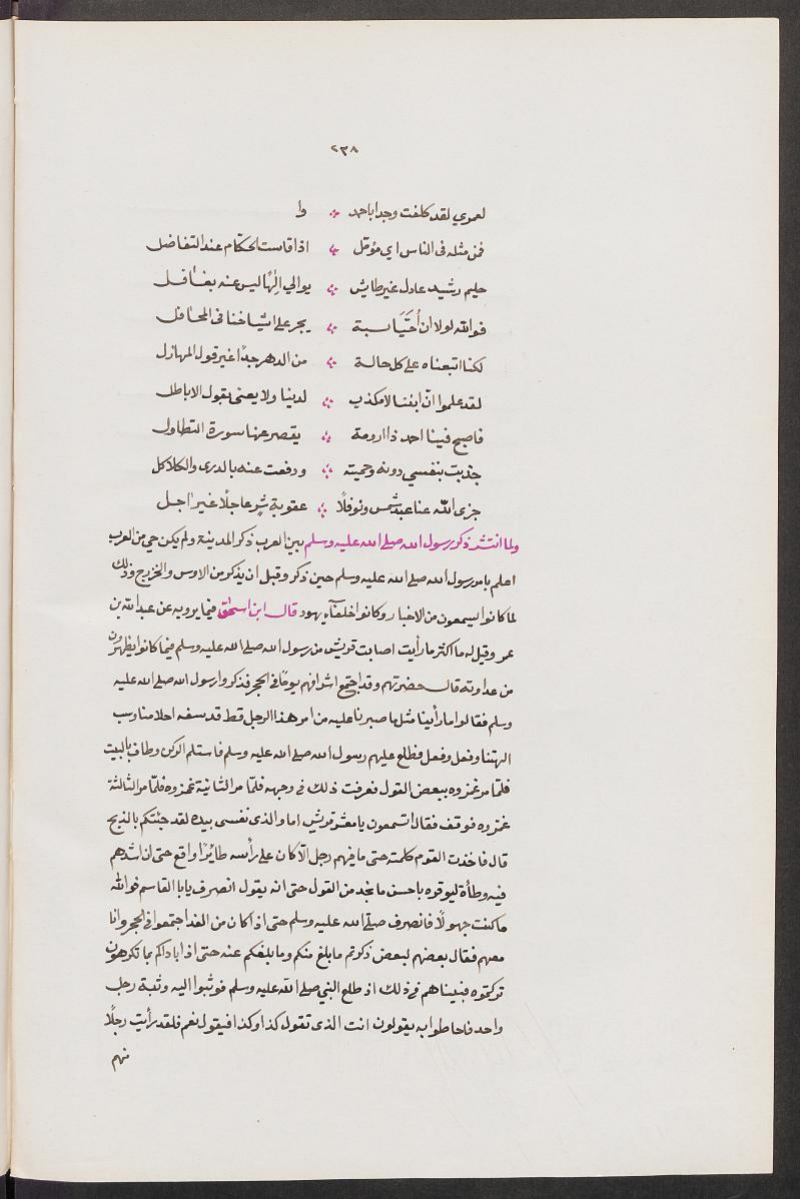 ٢٣٨
لعمري لقد كلفت وجدا باحمد ❖ وا
فمن مثله في الناس اي مؤمّل ❖ اذا قاست الحكّام عند التفاضل
حليم رشيد عادل غير طايش ❖ يوالي الٰهًا ليس عنه بغافل
فوالله لولا ان بسبة ❖ يجر على اشياخنا في المحافل
لكنا اتبعناه على كل حالة ❖ من الدهر جدًا غير قول المهازل
لقد علموا انّ ابننا لا مكذب ❖ لدينا ولا يعنى بقول الاباطل
فاصبح فينا احمد ذا ارومة ❖ يقصر عنها سورة التطاول
حدبت بنفسي دونه وحميته ❖ ودفعت عنه بالدرى والكلاكل
جزى الله عنا عبد شمس ونوفلًا ❖ عقوبة شرٍ عاجلًا غير اجل
ولما انتشر ذكر رسول الله صلى الله عليه وسلم بين العرب ذكر المدينة ولم يكن حي من العرب
اعلم بامر رسول الله صلى الله عليه وسلم حين ذكر وقبل ان يذكر من الاوس والخزرج وذلك
لما كانوا يسمعون من الاخبار وكانوا خلفاء يهود قال ابن اسحق فيما يرويه عن عبد الله بن
عمر وقيل له ما اكثر ما رأيت اصابت قريش من رسول الله صلى الله عليه وسلم فيما كانوا يظهرون
من عداوته قال حضرتهم وقد اجتمع اشرافهم يومًا في الحجر فذكروا رسول الله صلى الله عليه
وسلم فقالوا ما رأينا مثل ما صبرنا عليه من امر هذا الرجل قط قد سفه احلامنا وسب
الهتنا وفعل وفعل فطلع عليهم رسول الله صلى الله عليه وسلم فاستلم الركن وطاف بالبيت
فلمّا مر غمزوه ببعض القول فعرفت ذلك في وجهه فلمّا مر الثانية غمزوه فلمّا مر الثالثة
غمزوه فوقف فقال اتسمعون يا معشر قريش اما والذي نفسي بيده لقد جئتكم بالذبح
قال فاخذت القوم كلمته حتى ما فيهم رجل الّا كان على رأسه طايرًا واقع حتى ان اشدهم
فيه وطأة ليوقوه باحسن ما يجد من القول حتى انه يقول انصرف يا با القاسم فوالله
ما كنت جهولًا فانصرف صلى الله عليه وسلم حتى اذا كان من الغد اجتمعوا في الحجر وانا
معهم فقال بعضهم لبعض ذكرتم ما بلغ منكم وما بلغكم عنه حتى اذا باداكم بما تكرهون
تركتموه فبينا هم في ذلك اذ طلع النبي صلى الله عليه وسلم فوثبوا اليه وثبة رجل
واحد فاحاطوا به يقولون انت الذي تقول كذا وكذا فيقول نعم فلقد رأيت رجلًا
منهم